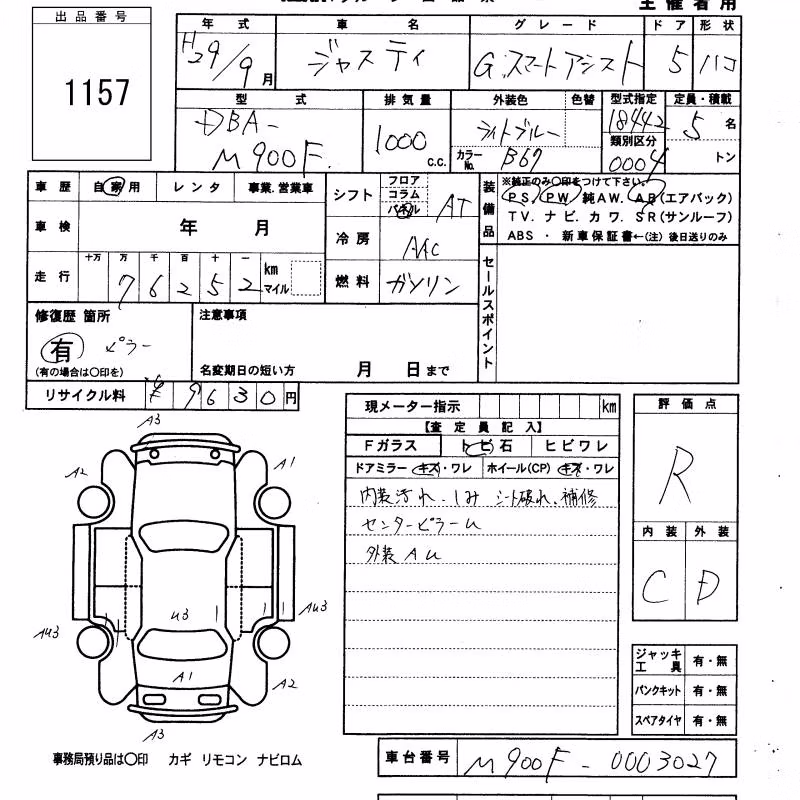 主催者用
出品番号
1157
年式 車名 グレード ドア 形状
H29/9月 ジャスティ G.スマートアシスト 5 ハコ
型式 排気量 外装色 色替 型式指定 定員・積載
DBA-M900F 1000 c.c. ライトブルー 18442 5名
カラーNo. B67 類別区分 0004 トン
車歴 自家用 レンタ 事業.営業車
車検 年 月
走行 十万 万 千 百 十 一 km マイル
7 6 2 5 2
シフト フロア コラム パネル AT
冷房 AAC
燃料 ガソリン
装備品
※純正のみ〇印をつけて下さい。
PS. PW. 純AW. AB(エアバック)
TV. ナビ. カワ. SR(サンルーフ)
ABS ・ 新車保証書←(注) 後日送りのみ
セールスポイント
修復歴 箇所
有 ピラー
(有の場合は〇印を)
注意事項
名変期日の短い方 月 日まで
リサイクル料 ¥ 9630円
現メーター指示 km
【査定員記入】
Fガラス トビ石 ヒビワレ
ドアミラー キズ・ワレ ホイール(CP) キズ・ワレ
内装汚れ.しみ シート破れ.補修
センターピラーU
外装AU
評価点
R
内装 外装
C D
ジャッキ工具 有・無
パンクキット 有・無
スペアタイヤ 有・無
A3
A2 A1
U3
AU3 AU3
A1
A2
A3
事務局預り品は〇印 カギ リモコン ナビロム
車台番号 M900F-0003027